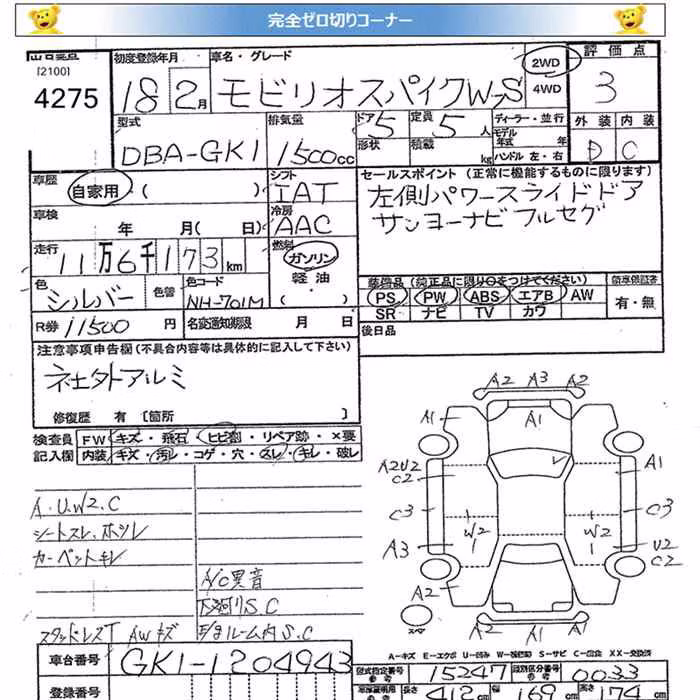 完全ゼロ切りコーナー
[2100]
4275
初度登録年月
18 2月
車名・グレード
モビリオスパイクW-S
2WD
4WD
評価点
3
外装 内装
D C
型式
DBA-GK1
排気量
1500cc
ドア 5
定員 5人
形状
積載 kg
ディーラー・並行
モデル年式 年
ハンドル 左・右
車歴
自家用 ( )
シフト
IAT
冷房
AAC
燃料
ガソリン
軽油
( )
車検
年 月( 日)
走行
11万6千173km
色
シルバー
色替
色コード
NH-701M
R券 11500 円
名変通知期限 月 日
セールスポイント (正常に機能するものに限ります)
左側パワースライドドア
サンヨーナビ フルセグ
装備品 (純正品に限り○をつけてください)
PS PW ABS エアB AW
SR ナビ TV カワ
有・無
後日品
注意事項申告欄 (不具合内容等は具体的に記入して下さい)
社外アルミ
修復歴 有 [箇所 ]
検査員
記入欄
FW キズ・飛石・ヒビ割・リペア跡・×要
内装 キズ・汚レ・コゲ・穴・スレ・キレ・破レ
A.U.W2.C
シートスレ.ホツレ
カーペットキレ
A/C異音
下廻りS.C
スタッドレス AWキズ
ルーム内S.C
A2 A3 A2
A1
A1
A2U2
C2
A1
C3
W2
W2
C3
A3
U2
C2
A2
スペア
A2 A1 A2
A=キズ E=エクボ U=凹み W=補修跡 S=サビ C=腐食 XX=交換済
車台番号
GK1-1204943
型式指定番号
15247
類別区分番号
0033
登録番号
長さ 412cm
幅 169cm
高さ 174cm